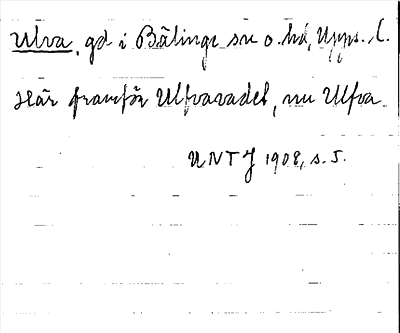 Ulva, gd i Bälinge sn o. hd, Upps. l.
Här framför Ulfvavadet, nu Ulfva.
UNTJ 1908, s. 5.